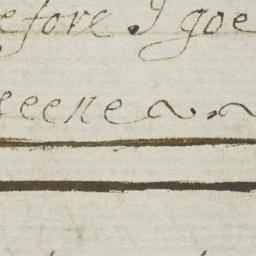 efore. I goe
eeene